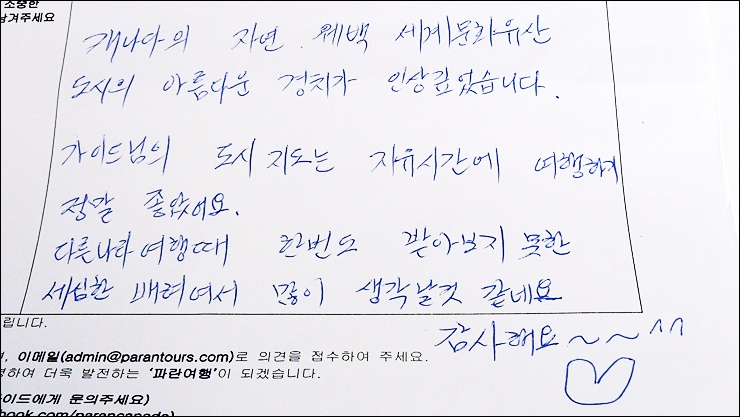 소중한
남겨주세요
캐나다의 자연. 퀘백 세계문화유산
도시의 아름다운 경치가 인상깊었습니다.
가이드님의 도시 지도는 자유시간에 여행하기
정말 좋았어요.
다른나라 여행때 한번도 받아보지 못한
세심한 배려여서 많이 생각날것 같네요
감사해요~~^^
립니다.
이메일(admin@parantours.com)로 의견을 접수하여 주세요.
영하여 더욱 발전하는 '파란여행'이 되겠습니다.
가이드에게 문의주세요)